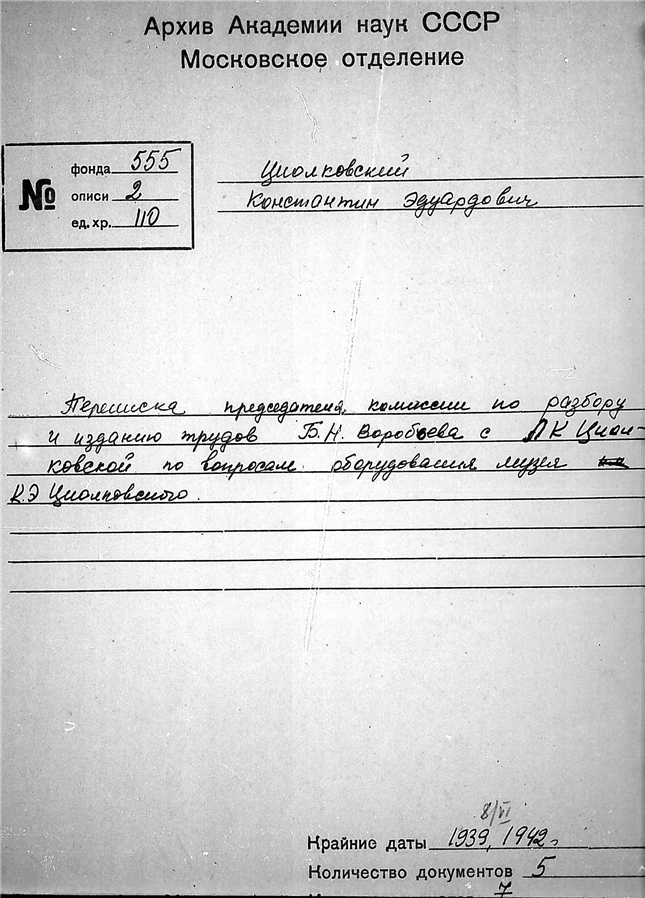 Архив Академии наук СССР
Московское отделение
№
фонда 555
описи 2
ед. хр. 110
Циолковский
Константин Эдуардович
Переписка председателя комиссии по разбору
и изданию трудов Б.Н. Воробьева с Л К Циол-
ковской по вопросам оборудования музея
К.Э Циолковского.
8/VI
Крайние даты 1939, 1942г
Количество документов 5
7